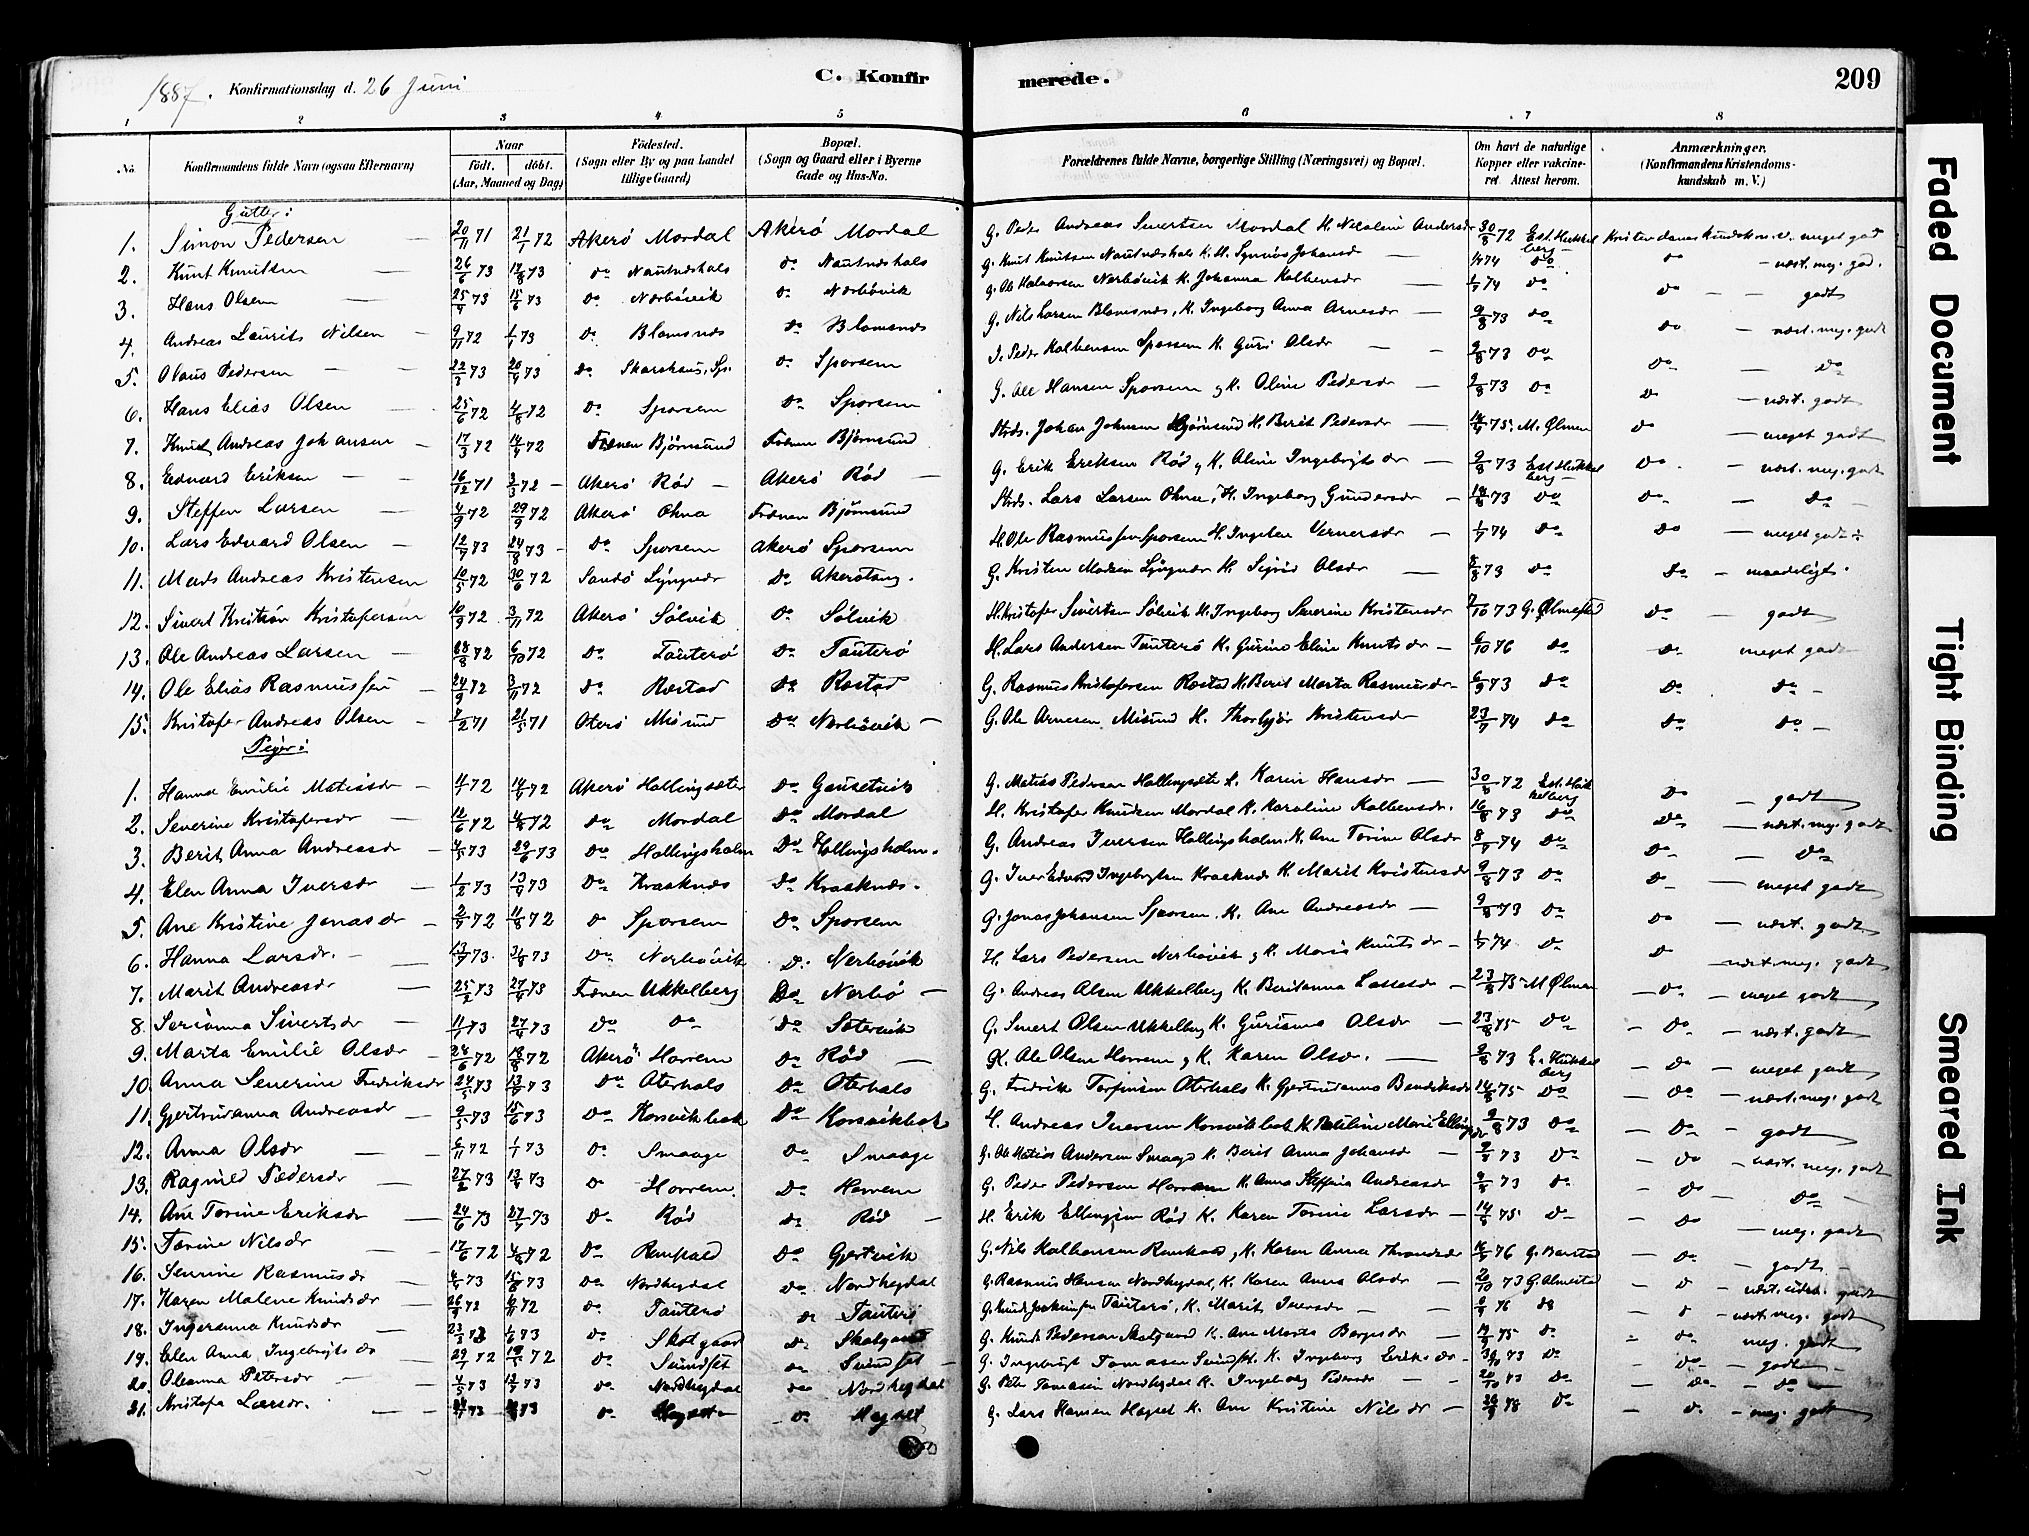 1887. Konfirmationsdag d. 26 Juni
C. Konfirmerede.
209
1 2 3 4 5 6 7 8
No. Konfirmandens fulde Navn (ogsaa Efternavn) Naar födt. döbt. (Aar, Maaned og Dag) Födested. (Sogn eller By og paa Landet tillige Gaard) Bopæl. (Sogn og Gaard eller i Byerne Gade og Hus-No. Forældrenes fulde Navne, borgerlige Stilling (Næringsvei) og Bopæl. Om havt de naturlige Kopper eller vakcineret Attest herom. Anmærkninger. (Konfirmandens Kristendomskundskab m. V.)
Gutter:
1. Simon Pedersen 20/11 71 21/1 72 Akerø Mordal Akerø Mordal G. Peder Andreas Sivertsen Mordal K. Nikoline Andersdr 30/8 72 meget godt
2. Knut Knutsen 26/6 73 17/8 73 do Nautneshals do Nautneshals G. Knut Knutsen Nautneshals K. Synnøv Johansdr do do næst. meg. god.
3. Hans Olsen 25/4 73 15/6 73 do Nerbövik do Nerbövik G. Ole Halvorsen Nerbövik K. Johanna Kolbensdr 1/7 74 do do godt
4. Andreas Laurits Nilsen 9/11 72 1/1 73 do Blomsnes do Blomsnes G. Nils Larsen Blomsnes, K. Ingeborg Anna Arnesdr 9/8 73 do do næst. meg. godt
5. Olaus Pedersen 22/3 73 20/4 73 do do Sporsem Peder Kolbensen Sporsem K. Guri Olsdr 9/8 73 do do do
6. Hans Elias Olsen 25/6 72 4/8 72 do Sporsem do Sporsem G. Ole Hansen Sporsem og K. Oline Pedersdr 9/8 73 do do næst. godt
7. Knud Andreas Johansen 17/3 72 14/4 72 Frænen Bjørnsund Frænen Bjørnsund Strds. Johan Johnsen Bjørnsund K. Berit Pedersdr 75. M. Ølmen do meget godt
8. Edvard Eriksen 16/12 71 3/3 72 Akerø Rød Akerø Rød G. Erik Eriksen Rød og K. Oline Ingebrigtsdr 9/8 73 do næst. meg. godt
9. Steffen Larsen 4/9 72 29/9 72 Akerø Ohna Frænen Bjørnsund Strds. Lars Larsen Ohna, K. Ingeborg Gundersdr 73 do do do
10. Lars Edvard Olsen 12/7 73 24/8 73 do Sporsem Akerø Sporsem H. Ole Rasmussen Sporsem K. Ingeborg Vernersdr 1/7 74 do do meget godt
11. Mads Andreas Kristensen 10/5 72 30/6 72 Sandø Lyngvær do G. Kristen Madsen Lyngvær K. Sigrid Olsdr 73 do do maadeligt
12. Sivert Kristian Kristofersen 10/9 72 3/11 72 Akerø Sølvik do Sølvik H. Kristofer Sivertsen Sølvik K. Ingeborg Severine Kristensdr 7/10 73 do godt
13. Ole Andreas Larsen 28/8 72 6/10 72 do Tauterø do Tauterø H. Lars Andersen Tauterø K. Gurine Eline Knutsdr 6/10 76 do do meget godt
14. Ole Elias Rasmussen 24/9 72 3/11 72 do Røstad do Røstad G. Rasmus Kristofersen Røstad K. Berit Marta Rasmusdr 6/9 73 do do do
15. Kristofer Andreas Olsen 7/2 71 21/5 71 Oterø Misund do Nerbövik G. Ole Arnesen Misund K. Thorbjør Kristensdr 23/7 74 do do do
Piger:
1. Hanna Emilie Matiasdr 72 14/4 72 Akerø Hollingsæter do Gausetvik G. Matias Pedersen Hollingsæter K. Karen Hansdr 30/8 72 do godt
2. Severine Kristofersdr 12/6 72 4/8 72 do Mordal do Mordal H. Kristofer Knudsen Mordal K. Karoline Kolbensdr. 16/8 73 do do næst. meg. godt
3. Berit Anna Andreasdr 4/5 73 29/6 73 do Hollingsholm do Hollingsholm. G. Andreas Iversen Hollingsholm K. Ane Torine Olsdr 8/7 74 do do do
4. Elen Anna Iversdr 1/2 73 13/4 73 do Kraaknes do Kraaknes. G. Iver Edvard Ingebrigtsen Kraaknes K. Marit Kristensdr 9/8 73 do do meget godt
5. Ane Kristine Jonasdr 2/7 72 11/8 72 do Sporsem do Sporsem G. Jonas Johansen Sporsem, K. Ane Andreasdr 9/8 73 do do næst. godt
6. Hanna Larsdr. 13/7 73 31/8 73 do Nerbövik do Nerbövik H. Lars Pedersen Nerbövik og K. Marit Knutsdr 1/7 74 do do næst. meg. godt
7. Marit Andreasdr 25/2 73 27/4 73 Frænen Ukkelberg do Nerbø G. Andreas Olsen Ukkelberg K. Beritanna Lassesdr 23/8 75 M Ølman do meget godt
8. Serianna Sivertsdr 11/1 73 27/4 73 do do do Sætervik G. Sivert Olsen Ukkelberg K. Gurianna Olsdr 23/8 75 do do næst. godt
9. Marta Emilie Olsdr 24/6 72 18/8 72 Akerø Horrem do Rød Ole Olsen Horrem og K. Karen Olsdr. 9/8 73 do meget godt
10. Anna Severine Fredriksdr 24/5 73 73 do Oterhals do Oterhals G. Fredrik Torfinsen Oterhals K. Gjertrudanna Bendriksdr 14/8 75 do do næst. meg. godt
11. Gjertrudanna Andreasdr 9/5 73 15/6 73 do Korsvikbæk do Korsvikbæk H. Andreas Iversen Korsvikbæk K. Pauline Marie Ellingsdr 9/8 73 do do godt
12. Anna Olsdr 6/11 72 1/1 73 do Smaage do Smaage G. Ole Matias Andersen Smaage K. Berit Anna Johansdr 73 do do næst. meg. godt
13. Ragnild Pedersdr 27/2 73 13/4 73 do Horrem. do Horrem G. Peder Pedersen Horrem K. Anna Steffania Andreasdr 73 do do do
14. Ane Torine Eriksdr 24/6 73 27/7 73 do Rød do Rød H. Erik Ellingsen Rød K. Karen Torine Larsdr 14/8 75 do do meg. godt
15. Torine Nilsdr 17/6 72 4/8 72 do do Gjertvik G. Nils Kolbensen K. Karen Anna 76 do godt
16. Severine Rasmusdr 73 15/6 73 do Nordhegdal do Nordhegdal G. Rasmus Hansen Nordhegdal, K. Karen Anna Olsdr 20/10 73 do godt
17. Karen Malene Knudsdr 26/9 72 72 do Tauterø do Tauterø G. Knud Tauterø, K. Marit Iversdr 76 do do næst meg. godt
18. Ingeranna Knudsdr 23/3 73 1/6 73 do Skotgaard do Skotgaard G. Knud Pedersen Skotgaard K. Ane Marta 75 do do meg. godt
19. Elen Anna Ingebrigtsdr 29/1 72 72 do Sundset do Sundset G. Ingebrigt Tomassen Sundset K. Ingeborg Eriksdr 73 do do godt
20. Oleanna Petersdr 4/5 73 13/7 73 do Nordhegdal do Nordhegdal G. Peter Tomassen Nordhegdal K. Ingeborg Pedersdr 20/10 73 do do do
21. Kristofa Larsdr. 73 73 do do Magset G. Lars Hansen K. Ane Kristine Nilsdr 78 do do meg. godt
Faded Document
Tight Binding
Smeared Ink